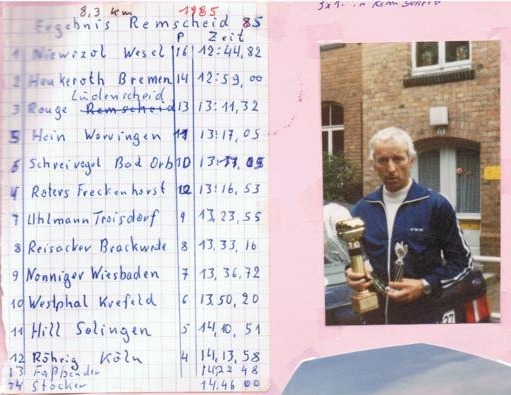 8,3 km 1985
Ergebnis Remscheid 85
P Zeit
1 Niewizol Wesel 16 12:44,82
2 Heukeroth Bremen 14 12:59,00
Lüdenscheid
3 Rouge Remscheid 13 13:11,32
5 Hein Worringen 11 13:17,05
6 Schreivogel Bad Orb 10 13:
4 Roters Freckenhorst 12 13:16,53
7 Uhlmann Troisdorf 9 13,23,55
8 Reisacker Brackwede 8 13,33,16
9 Nonniger Wiesbaden 7 13,36,72
10 Westphal Krefeld 6 13,50,20
11 Hill Solingen 5 14,10,51
12 Röhrig Köln 4 14,13,58
13 Faßbender 14 22 48
14 Stocker 14,46 00